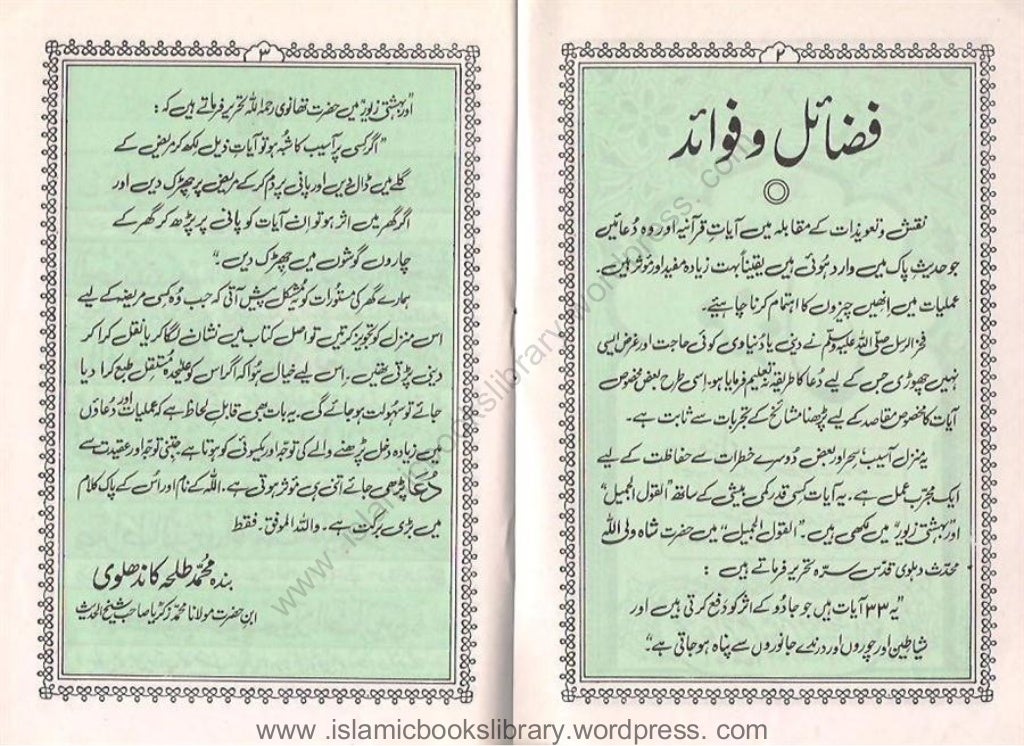 ۲
فضائل و فوائد
نقش و تعویذات کے مقابلہ میں آیاتِ قرآنیہ اور وہ دُعائیں
جو حدیثِ پاک میں وارد ہُوئی ہیں یقیناً بہت زیادہ مفید اور مؤثر ہیں۔
عملیات میں اِنھیں چیزوں کا اہتمام کرنا چاہیئے۔
فخر الرسل صلی اللہ علیہ وسلم نے دینی یا دُنیاوی کوئی حاجت اور غرض ایسی
نہیں چھوڑی جس کے لیے دُعا کا طریقہ نہ تعلیم فرمایا ہو۔ اِسی طرح بعض مخصوص
آیات کا مخصوص مقاصد کے لیے پڑھنا مشائخ کے تجربات سے ثابت ہے۔
یہ منزل آسیب، سحر اور بعض دُوسرے خطرات سے حفاظت کے لیے
ایک مجرّب عمل ہے۔ یہ آیات کسی قدر کمی بیشی کے ساتھ ”القول الجمیل“
اور ”بہشتی زیور“ میں لکھی ہیں۔ ”القول الجمیل“ میں حضرت شاہ ولی اللہ
محدّث دہلوی قدّس سرّہ تحریر فرماتے ہیں :
”یہ ۳۳ آیات ہیں جو جادُو کے اثر کو دفع کرتی ہیں اور
شیاطین اور چوروں اور درندے جانوروں سے پناہ ہو جاتی ہے۔“
۳
اور بہشتی زیور میں حضرت تھانوی رحمہ اللہ تحریر فرماتے ہیں کہ :
”اگر کسی پر آسیب کا شُبہ ہو تو آیاتِ ذیل لکھ کر مریض کے
گلے میں ڈال دیں اور پانی پر دَم کر کے مریض پر چھڑک دیں اور
اگر گھر میں اثر ہو تو اِن آیات کو پانی پر پڑھ کر گھر کے
چاروں گوشوں میں چھڑک دیں۔“
ہمارے گھر کی مستورات کو یہ مشکل پیش آتی کہ جب وُہ کسی مریضہ کے لیے
اس منزل کو تجویز کرتیں تو اصل کتاب میں نشان لگا کر یا نقل کرا کر
دینی پڑتی تھیں۔ اِس لیے خیال ہُوا کہ اگر اس کو علیٰحدہ مُستقل طبع کرا دیا
جائے تو سہُولت ہو جائے گی۔ یہ بات بھی قابلِ لحاظ ہے کہ عملیات اور دُعاؤں
میں زیادہ دخل پڑھنے والے کی توجّہ اور یکسوئی کو ہوتا ہے جتنی توجّہ اور عقیدت سے
دُعا پڑھی جائے اتنی ہی مؤثر ہوتی ہے۔ اللہ کے نام اور اُس کے پاک کلام
میں بڑی برکت ہے۔ واللہ الموفق۔ فقط
بندہ محمّد طلحہ کاندھلوی
ابنِ حضرت مولانا محمّد زکریا صاحب شیخ الحدیث
www.islamicbookslibrary.wordpress.com
www .islamicbookslibrary.wordpress. com